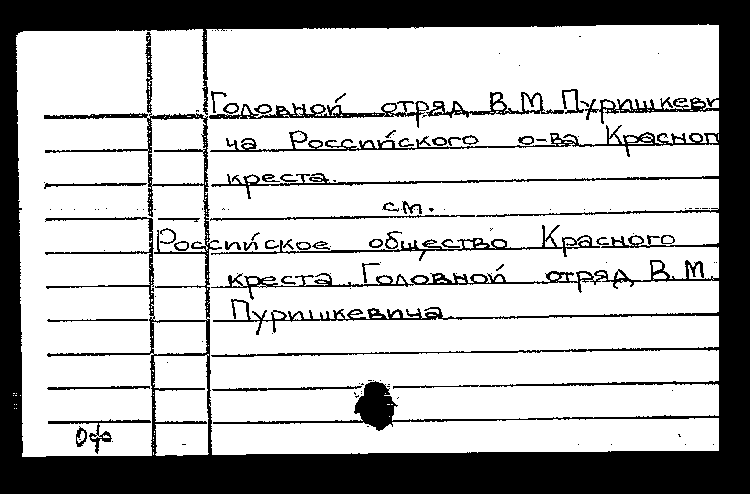 Головной отряд В.М. Пуришкеви
ча Российского о-ва Красног
креста.
см.
Российское общество Красного
креста. Головной отряд В.М.
Пуришкевича
Офо